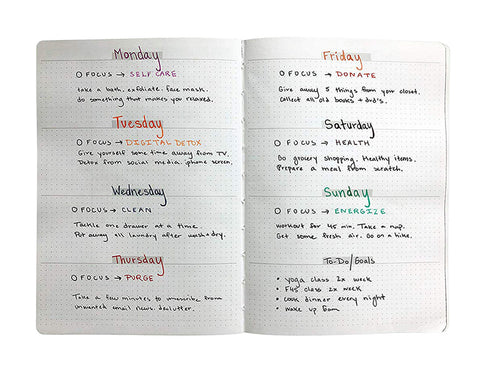 Monday
O FOCUS → SELF CARE
take a bath. exfoliate. face mask.
do something that makes you relaxed.
Tuesday
O FOCUS → DIGITAL DETOX
Give yourself some time away from TV.
Detox from social media. iphone screen.
Wednesday
O FOCUS → CLEAN
Tackle one drawer at a time.
Put away all laundry after wash + dry.
Thursday
O FOCUS → PURGE
Take a few minutes to unsubscribe from
unwanted email news. declutter.
Friday
O FOCUS → DONATE
Give away 5 things from your closet.
Collect all old books + dvd's.
Saturday
O FOCUS → HEALTH
Do grocery shopping. Healthy items.
Prepare a meal from scratch.
Sunday
O FOCUS → ENERGIZE
workout for 45 min. Take a nap.
Get some fresh air. Go on a hike.
To-Do/Goals
• yoga class 2x week
• F45 class 2x week
• cook dinner every night
• wake up 6am